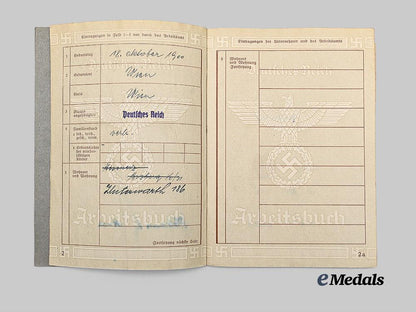 Eintragungen in Feld 1–6 nur durch das Arbeitsamt
1 Geburtstag
18. Oktober 1900
2 Geburtsort
Wien
Kreis
Wien
3 Staats-
angehörigkeit
Deutsches Reich
4 Familienstand
verh.
5 Geburtsjahre
der minder-
jährigen
Kinder
6 Wohnort
und Wohnung
Unterwarth 186
Arbeitsbuch
Fortsetzung nächste Seite
2
Eintragungen für Unternehmer und das Arbeitsamt
6 Wohnort
und Wohnung
(Fortsetzung)
Deutsches Reich
Arbeitsbuch
2a
eMedals